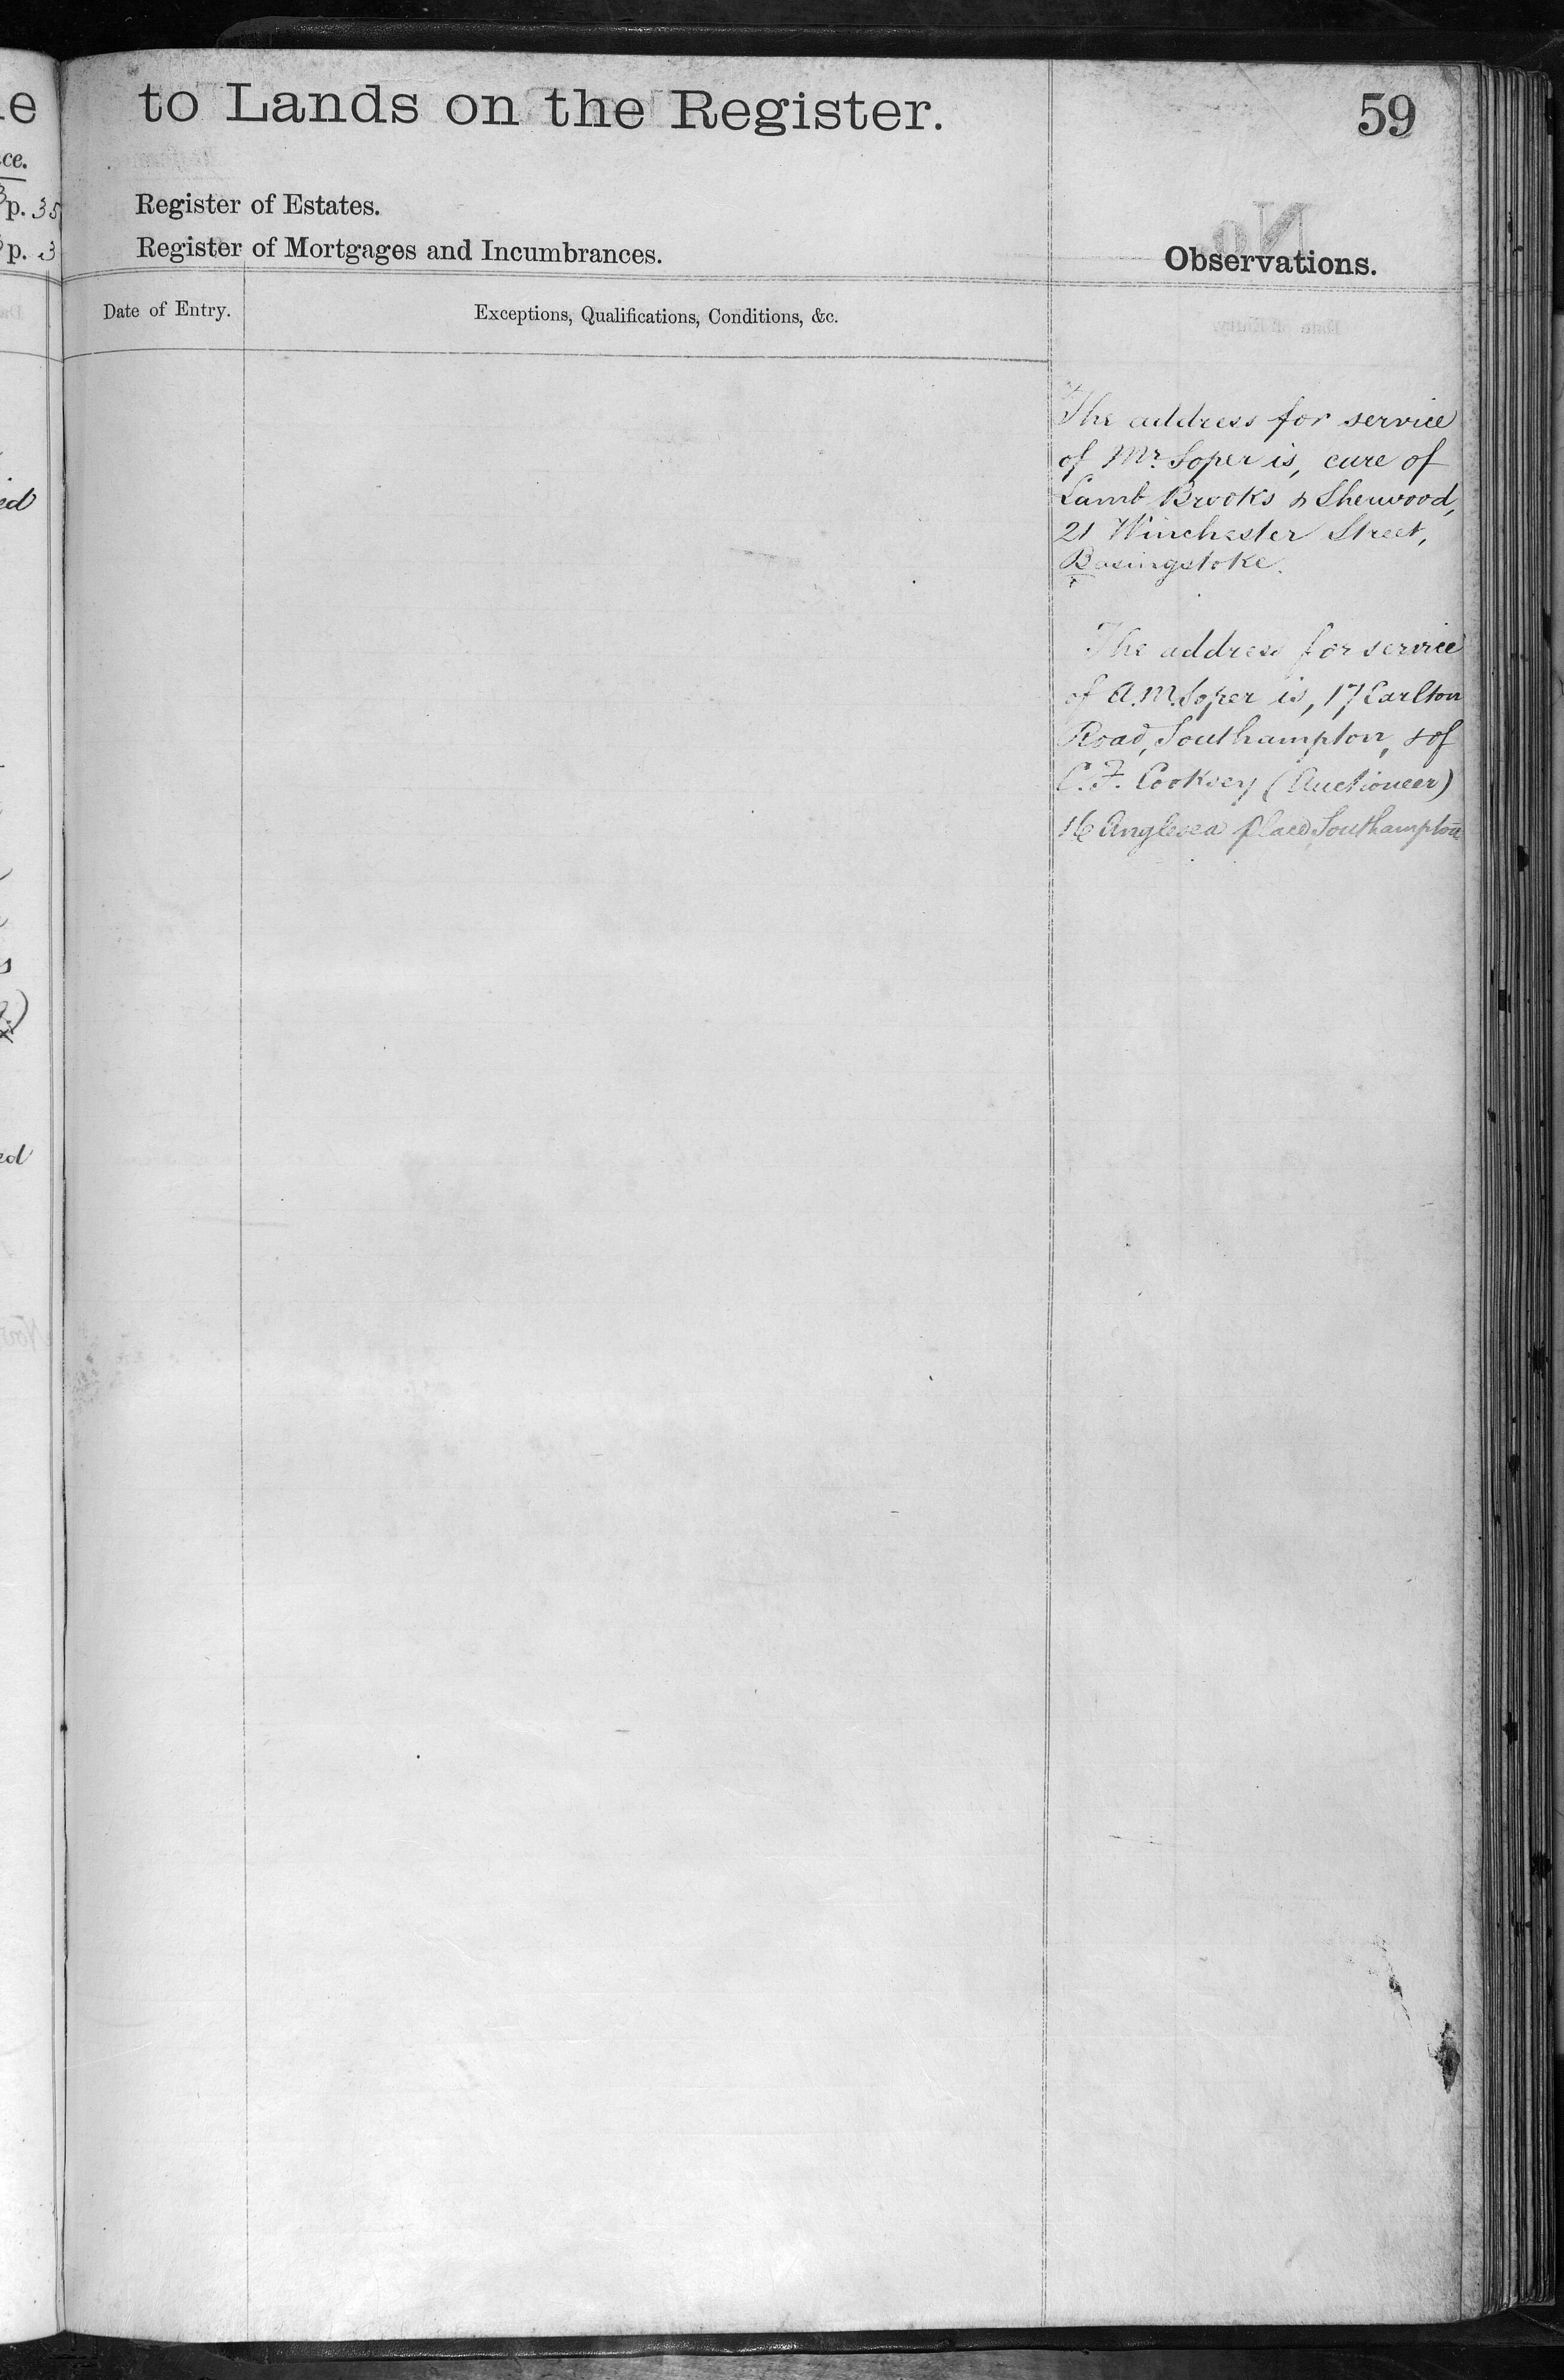 to Lands on the Register.
59
Register of Estates.
Register of Mortgages and Incumbrances.
Observations.
Date of Entry.
Exceptions, Qualifications, Conditions, &c.
The address for service
of Mr. Soper is, care of
Lamb Brooks & Sherwood,
21 Winchester Street,
Basingstoke.
The address for service
of A.M. Soper is, 17 Carlton
Road, Southampton, & of
C. F. Cooksey (Auctioneer)
16 Anglesea place Southampton
ce.
p. 35
p. 3
ed
ed